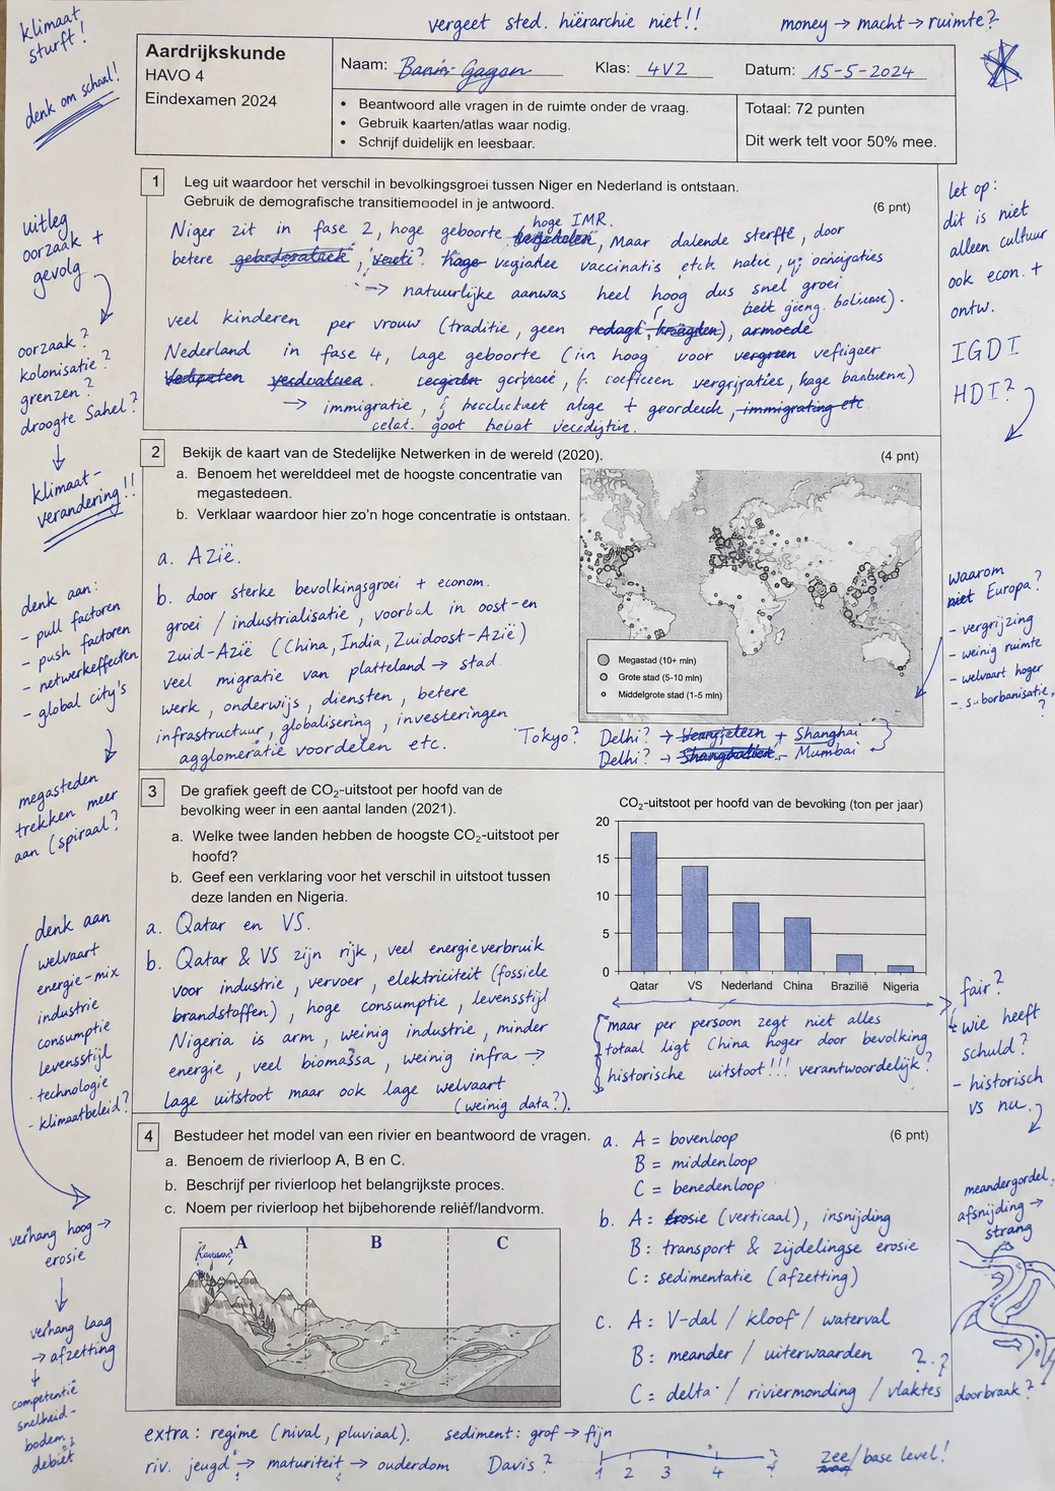 klimaat
sturft!
denk om schaal!
vergeet sted. hiërarchie niet!!
money → macht → ruimte?
Aardrijkskunde
HAVO 4
Eindexamen 2024
Naam:
Klas: 4V2
Datum: 15-5-2024
• Beantwoord alle vragen in de ruimte onder de vraag.
• Gebruik kaarten/atlas waar nodig.
• Schrijf duidelijk en leesbaar.
Totaal: 72 punten
Dit werk telt voor 50% mee.
1 Leg uit waardoor het verschil in bevolkingsgroei tussen Niger en Nederland is ontstaan.
Gebruik de demografische transitiemodel in je antwoord.
(6 pnt)
hoge IMR.
Niger zit in fase 2, hoge geboorte , Maar dalende sterfte, door
betere vaccinatis
→ natuurlijke aanwas heel hoog dus snel groei
veel kinderen per vrouw (traditie, geen armoede
Nederland in fase 4, lage geboorte hoog voor
→ immigratie, +
uitleg
oorzaak +
gevolg
oorzaak?
kolonisatie?
grenzen?
droogte Sahel?
↓
klimaat-
verandering!!
let op:
dit is niet
alleen cultuur
ook econ. +
ontw.
IGDI
HDI?
2 Bekijk de kaart van de Stedelijke Netwerken in de wereld (2020).
(4 pnt)
a. Benoem het werelddeel met de hoogste concentratie van
megastedeen.
b. Verklaar waardoor hier zo'n hoge concentratie is ontstaan.
a. Azië.
b. door sterke bevolkingsgroei + econom.
groei / industrialisatie, voorbal in oost-en
Zuid-Azië (China, India, Zuidoost-Azië)
veel migratie van platteland → stad.
werk, onderwijs, diensten, betere
infrastructuur, globalisering, investeringen
agglomeratie voordelen etc.
Megastad (10+ min)
Grote stad (5-10 min)
Middelgrote stad (1-5 min)
Tokyo? Delhi? → + Shanghai
Delhi? → - Mumbai
denk aan:
- pull factoren
- push factoren
- netwerkeffecten
- global city's
megasteden
trekken meer
aan (spiraal?
waarom
niet Europa?
- vergrijzing
- weinig ruimte
- welvaart hoger
- suborbanisatie,
?
3 De grafiek geeft de CO₂-uitstoot per hoofd van de
bevolking weer in een aantal landen (2021).
a. Welke twee landen hebben de hoogste CO₂-uitstoot per
hoofd?
b. Geef een verklaring voor het verschil in uitstoot tussen
deze landen en Nigeria.
a. Qatar en VS.
b. Qatar & VS zijn rijk, veel energieverbruik
voor industrie, vervoer, elektriciteit (fossiele
brandstoffen), hoge consumptie, levensstijl
Nigeria is arm, weinig industrie, minder
energie, veel biomassa, weinig infra →
lage uitstoot maar ook lage welvaart
(weinig data?).
CO₂-uitstoot per hoofd van de bevoking (ton per jaar)
20
15
10
5
0
Qatar VS Nederland China Brazilië Nigeria
maar per persoon zegt niet alles
totaal ligt China hoger door bevolking
historische uitstoot!!! verantwoordelijk?
denk aan
welvaart
energie-mix
industrie
consumptie
levensstijl
- technologie
- klimaatbeleid?
fair?
wie heeft
schuld?
- historisch
vs nu.
4 Bestudeer het model van een rivier en beantwoord de vragen.
(6 pnt)
a. Benoem de rivierloop A, B en C.
b. Beschrijf per rivierloop het belangrijkste proces.
c. Noem per rivierloop het bijbehorende reliëf/landvorm.
A B C
a. A = bovenloop
B = middenloop
C = benedenloop
b. A: erosie (verticaal), insnijding
B: transport & zijdelingse erosie
C: sedimentatie (afzetting)
c. A: V-dal / kloof / waterval
B: meander / uiterwaarden ?.?
C = delta / riviermonding / vlaktes doorbraak?
verhang hoog →
erosie
↓
verhang laag
→ afzetting
↓
competentie
snelheid-
bodem
debiet
meandergordel,
afsnijding →
strang
extra: regime (nival, pluviaal). sediment: grof → fijn
riv. jeugd → maturiteit → ouderdom Davis?
1 2 3 4 ?
zee / base level!